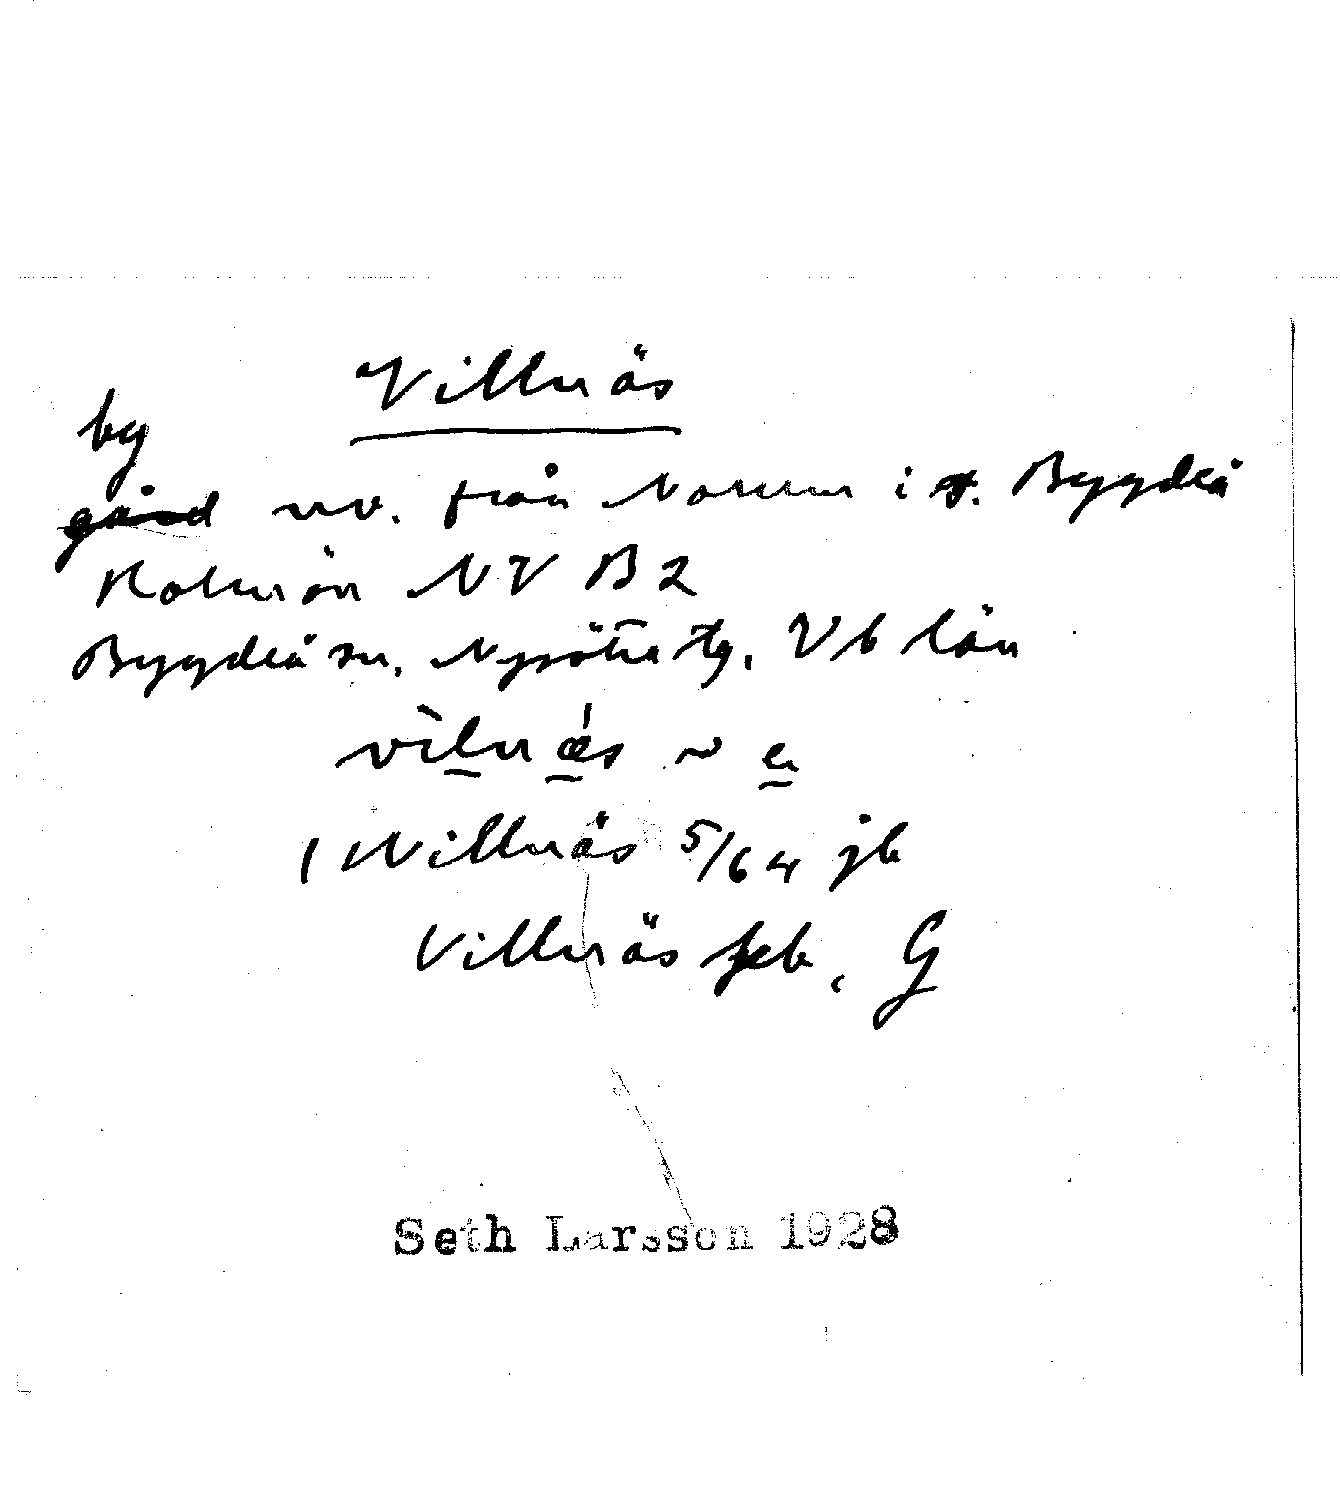 Villnäs
by
gård nv. från Norum i s. Bygdeå
Holmön NV B2
Bygdeå sn, Nysätra tg, Vb län
vìlnǽs ~ e
Villnäs 5/64 jb
Villnäs jeb, G
Seth Larsson 1928